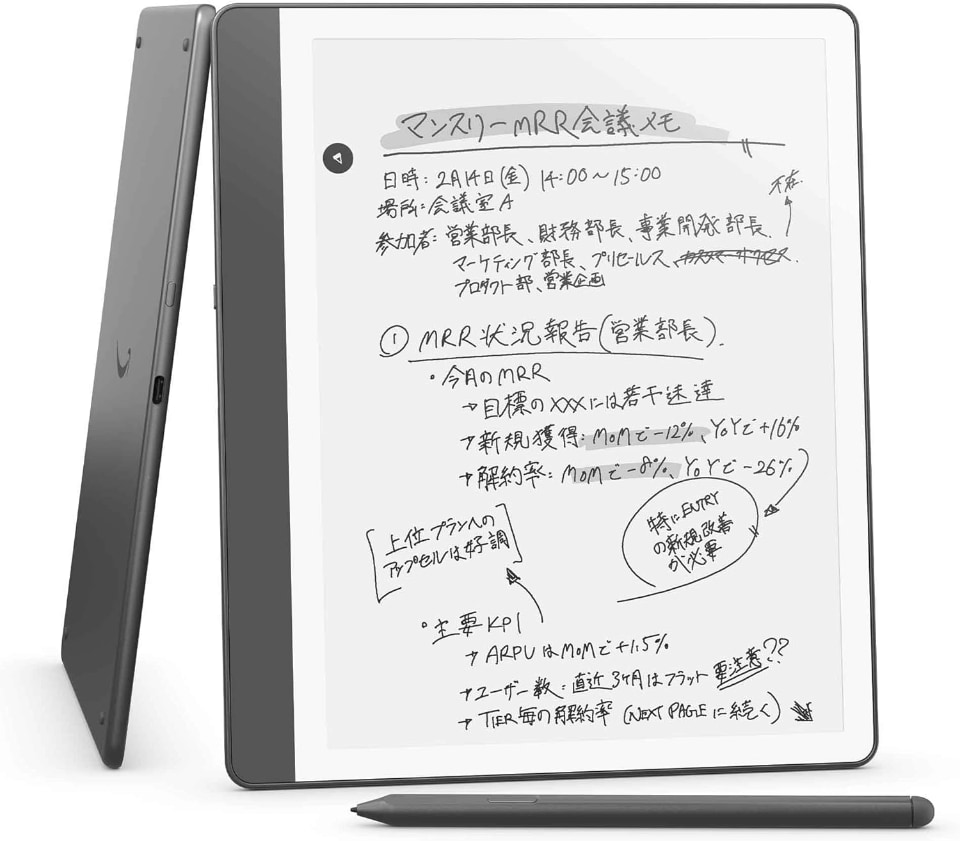 マンスリーMRR会議メモ
日時：2月14日(金) 14:00～15:00
場所：会議室A
不在
参加者：営業部長、財務部長、事業開発部長、
マーケティング部長、プリセールス、カスタマーサクセス、
プロダクト部、営業企画
① MRR状況報告(営業部長)
・今月のMRR
→目標のXXXには若干未達
→新規獲得：MoMで-12%、YoYで+16%
→解約率：MoMで-8%、YoYで-26%
特にENTRY
の新規改善
が必要
[上位プランへの
アップセルは好調]
・主要KPI
→ARPUはMoMで+1.5%
→ユーザー数：直近3ヶ月はフラット 要注意??
→TIER毎の解約率 (NEXT PAGEに続く)